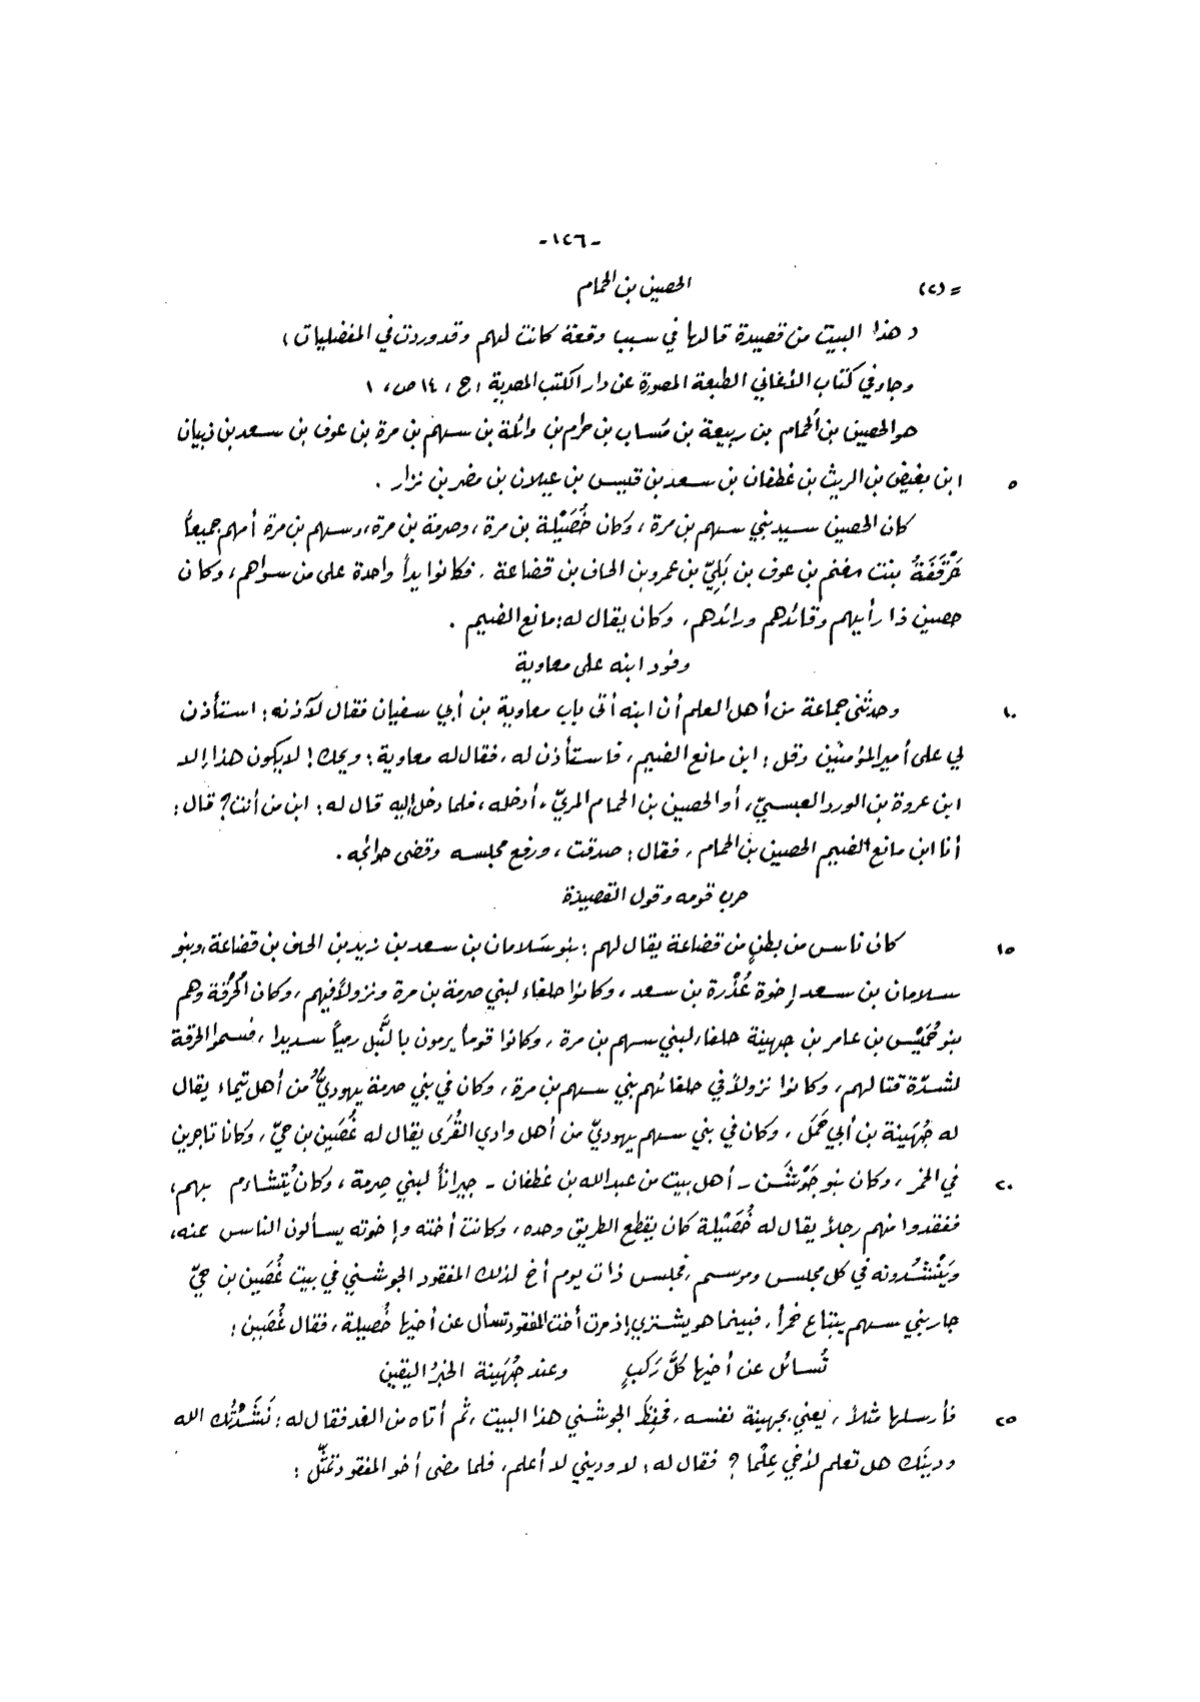 -١٢٦-
= (٢) الحصين بن الحمام
« هذا البيت من قصيدة قالها في سبب وقعة كانت لهم وقد وردت في المفضليات ،
وجاء في كتاب الأغاني الطبعة المصورة عن دار الكتب المصرية ، ج ، ١٤ ص ، ١
هو الحصين بن الحمام بن ربيعة بن مُساب بن حرام بن وائلة بن سهم بن مرة بن عوف بن سعد بن ذبيان
٥ ابن بغيض بن الريث بن غطفان بن سعد بن قيس بن عيلان بن مضر بن نزار .
كان الحصين سيد بني سهم بن مرة ، وكان خُصَيْلة بن مرة ، وصرمة بن مرة ، وسهم بن مرة أمهم جميعاً
حَرْقَفَةُ بنت مغنم بن عوف بن بَلِيّ بن عمرو بن الحاف بن قضاعة . فكانوا يداً واحدة على من سواهم ، وكان
حصين ذا رأيهم وقائدهم ورائدهم ، وكان يقال له : مانع الضيم .
وفود ابنه على معاوية
١٠ وحدثني جماعة من أهل العلم أن ابنه أتى باب معاوية بن أبي سفيان فقال لآذنه : استأذن
لي على أمير المؤمنين وقل : ابن مانع الضيم ، فاستأذن له ، فقال له معاوية : ويحك ! لا يكون هذا إلا
ابن عروة بن الورد العبسيّ ، أو الحصين بن الحمام المريّ ، أدخله ، فلما دخل إليه قال له : ابن من أنت ؟ قال :
أنا ابن مانع الضيم الحصين بن الحمام ، فقال : صدقت ، ورفع مجلسه وقضى حوائجه .
حرب قومه وقول القصيدة
١٥ كان ناس من بطنٍ من قضاعة يقال لهم : بنو سَلامان بن سعد بن زيد بن الحاف بن قضاعة ، وبنو
سلامان بن سعد إخوة عُذْرة بن سعد ، وكانوا حلفاء لبني صرمة بن مرة ونزولاً فيهم ، وكان الحُرَقة وهم
بنو حُمَيْس بن عامر بن جهينة حلفاء لبني سهم بن مرة ، وكانوا قوماً يرمون بالنَّبل رمياً سديدا ، فسموا الحرقة
لشدّة قتالهم ، وكانوا نزولاً في حلفائهم بني سهم بن مرة ، وكان في بني صرمة يهوديٌّ من أهل تيماء يقال
له جُهَينة بن أبي حَمَل ، وكان في بني سهم يهوديّ من أهل وادي القُرَى يقال له غُصَين بن حيّ ، وكانا تاجرين
٢٠ في الخمر ، وكان بنو جَوْشَن - أهل بيت من عبد الله بن غطفان - جيراناً لبني صِرمة ، وكان يُتشاءم بهم ،
ففقدوا منهم رجلاً يقال له خُصَيْلة كان يقطع الطريق وحده ، وكانت أخته وإخوته يسألون الناس عنه ،
ويَنْشُدونه في كل مجلس وموسم ، فجلس ذات يوم أخ لذلك المفقود الجوشني في بيت غُصَين بن حيّ
جار بني سهم يبتاع خمراً ، فبينما هو يشتري إذ مرت أخت المفقود تسأل عن أخيها خُصيلة ، فقال غُصَين :
تُسائل عن أخيها كُلَّ رَكبٍ وعند جُهَينة الخبرُ اليقين
٢٥ فأرسلها مثلاً ، يعني بجهينة نفسه ، فحفِظَ الجوشني هذا البيت ، ثم أتاه من الغد فقال له : نَشَدْتُك الله
ودينَك هل تعلم لأخي عِلْما ؟ فقال له : لا وديني لا أعلم ، فلما مضى أخو المفقود تمثّل :